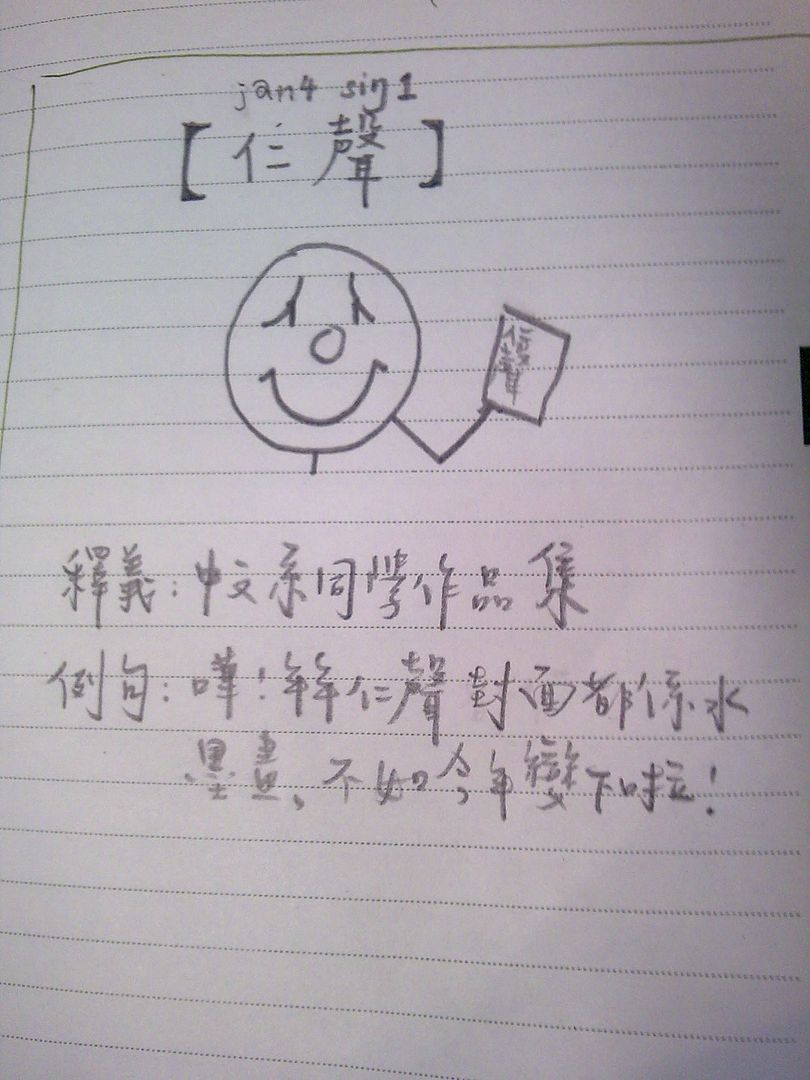 jan4 sing1
【仁聲】
仁聲
釋義：中文系同學作品集
例句：嘩！年年仁聲封面都係水
墨畫，不如今年變下啦！